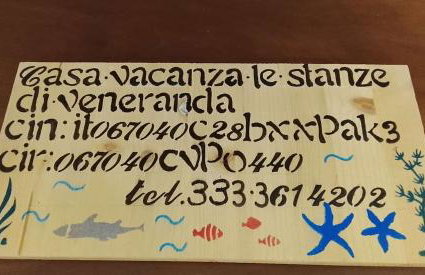 Casa·vacanza·le·stanze
di·veneranda
cin: it067040C28bxxPak3
cir:067040CVP0440
tel.333·3614202